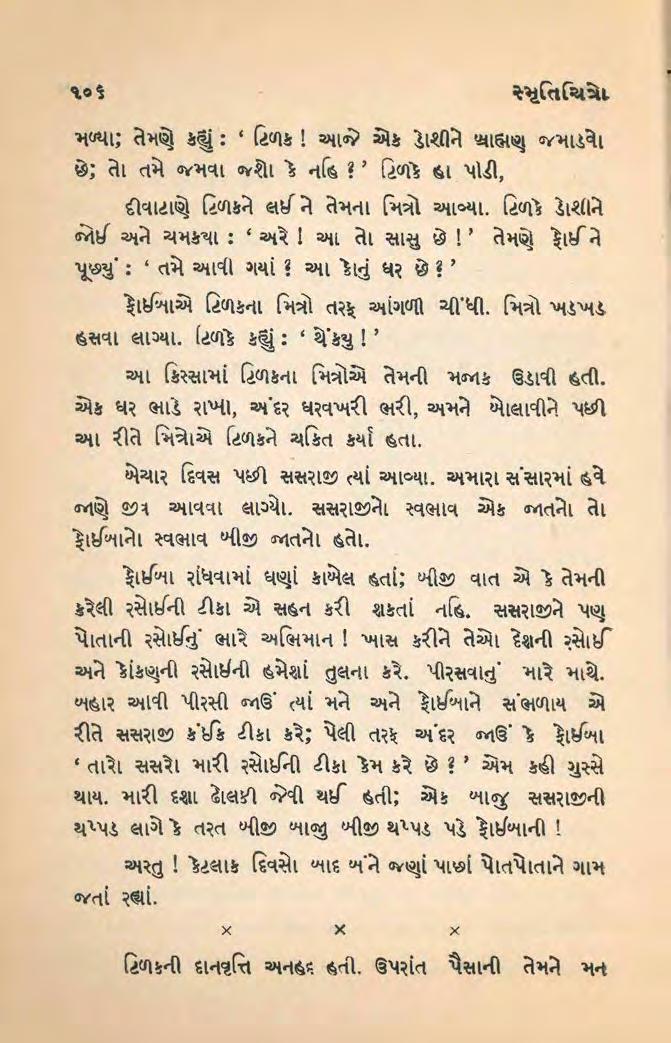 ૧૦૬ સ્મૃતિચિત્રો
મળ્યા; તેમણે કહ્યું : ‘ ટિળક ! આજે એક ડોશીને બ્રાહ્મણ જમાડવો
છે; તો તમે જમવા જશો કે નહિ ? ’ ટિળકે હા પોડી,
દીવાટાણે ટિળકને લઈ ને તેમના મિત્રો આવ્યા. ટિળકે ડોશીને
જોઈ અને ચમકયા : ‘ અરે ! આ તો સાસુ છે ! ’ તેમણે ફોઈ ને
પૂછ્યું : ‘ તમે આવી ગયાં ? આ કોનું ઘર છે ? ’
ફોઈબાએ ટિળકના મિત્રો તરફ આંગળી ચીંધી. મિત્રો ખડખડ
હસવા લાગ્યા. ટિળકે કહ્યું : ‘ થેંકયુ ! ’
આ કિસ્સામાં ટિળકના મિત્રોએ તેમની મજાક ઉડાવી હતી.
એક ઘર ભાડે રાખી, અંદર ઘરવખરી ભરી, અમને બોલાવીને પછી
આ રીતે મિત્રોએ ટિળકને ચકિત કર્યા હતા.
બેચાર દિવસ પછી સસરાજી ત્યાં આવ્યા. અમારા સંસારમાં હવે
જાણે જીત્ર આવવા લાગ્યો. સસરાજીનો સ્વભાવ એક જાતનો તો
ફોઈબાનો સ્વભાવ બીજી જાતનો હતો.
ફોઈબા રાંધવામાં ઘણાં કાબેલ હતાં; બીજી વાત એ કે તેમની
કરેલી રસોઈની ટીકા એ સહન કરી શકતાં નહિ. સસરાજીને પણ
પોતાની રસોઈનું ભારે અભિમાન ! ખાસ કરીને તેઓ દેશની રસોઈ
અને કોંકણની રસોઈની હમેશાં તુલના કરે. પીરસવાનું મારે માથે.
બહાર આવી પીરસી જાઉં ત્યાં મને અને ફોઈબાને સંભળાય એ
રીતે સસરાજી કંઈક ટીકા કરે; પેલી તરફ અંદર જાઉં કે ફોઈબા
‘ તારો સસરો મારી રસોઈની ટીકા કેમ કરે છે ? ’ એમ કહી ગુસ્સે
થાય. મારી દશા ઢોલકી જેવી થઈ હતી; એક બાજુ સસરાજીની
થપ્પડ લાગે કે તરત બીજી બાજુ બીજી થપ્પડ પડે ફોઈબાની !
અસ્તુ ! કેટલાક દિવસો બાદ બંને જણાં પાછાં પોતપોતાને ગામ
જતાં રહ્યાં.
× × ×
ટિળકની દાનવૃત્તિ અનહદ હતી. ઉપરાંત પૈસાની તેમને મન